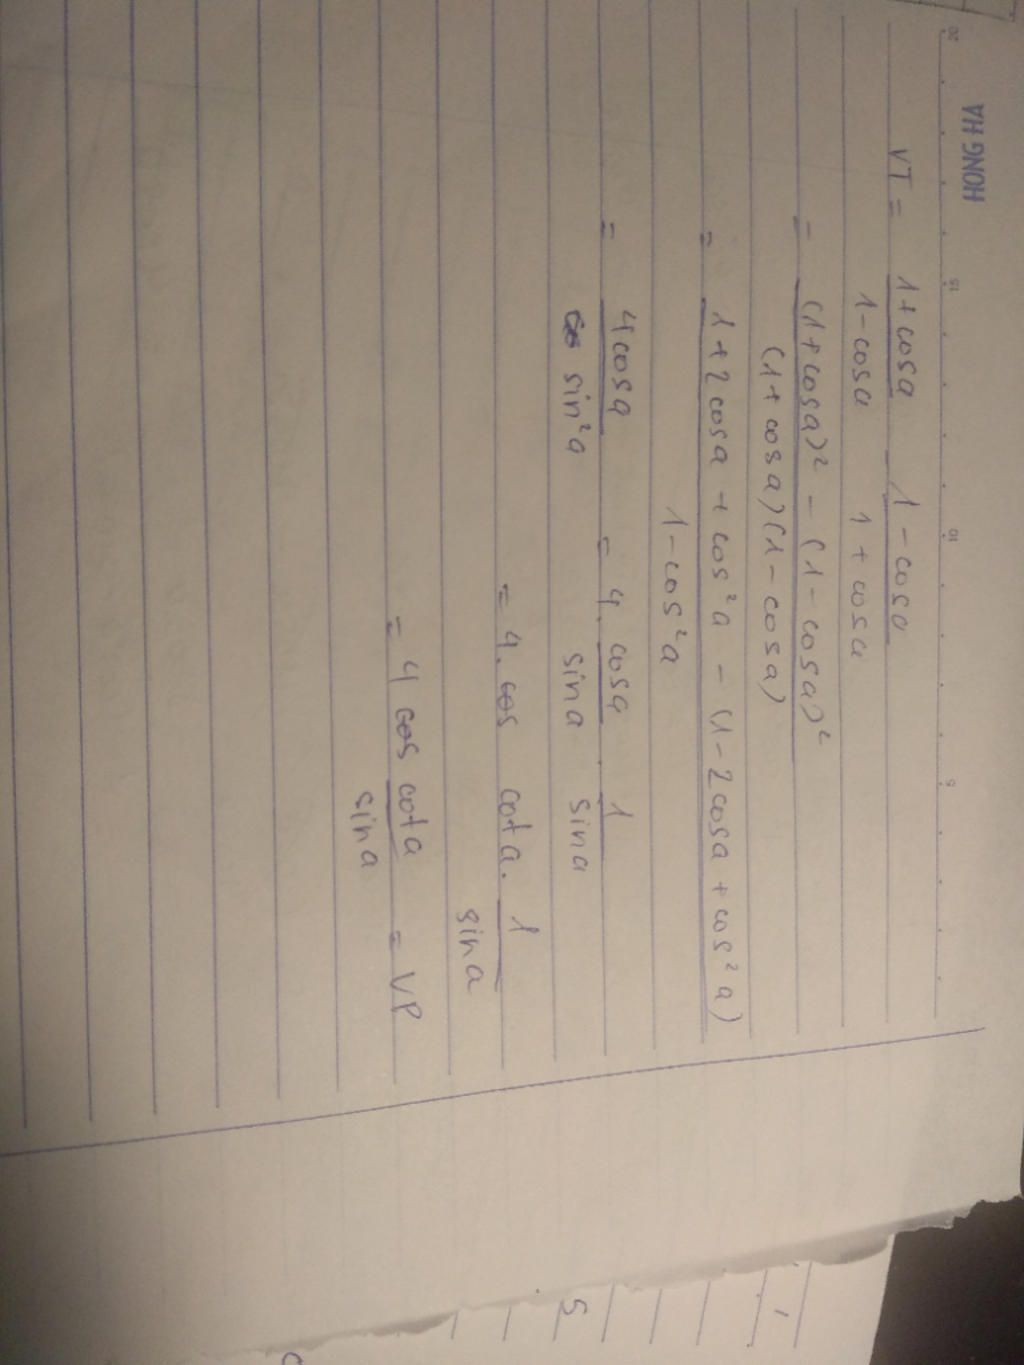 HONG HA
20 15 10 5
VT = 1+cosa / 1-cosa - 1-cosa / 1+cosa
= (1+cosa)² - (1-cosa)² / (1+cosa)(1-cosa)
= 1+2cosa+cos²a - (1-2cosa+cos²a) / 1-cos²a
= 4cosa / sin²a = 4. cosa / sina . 1 / sina
= 4. cota. 1 / sina
= 4 cota / sina = VP
5